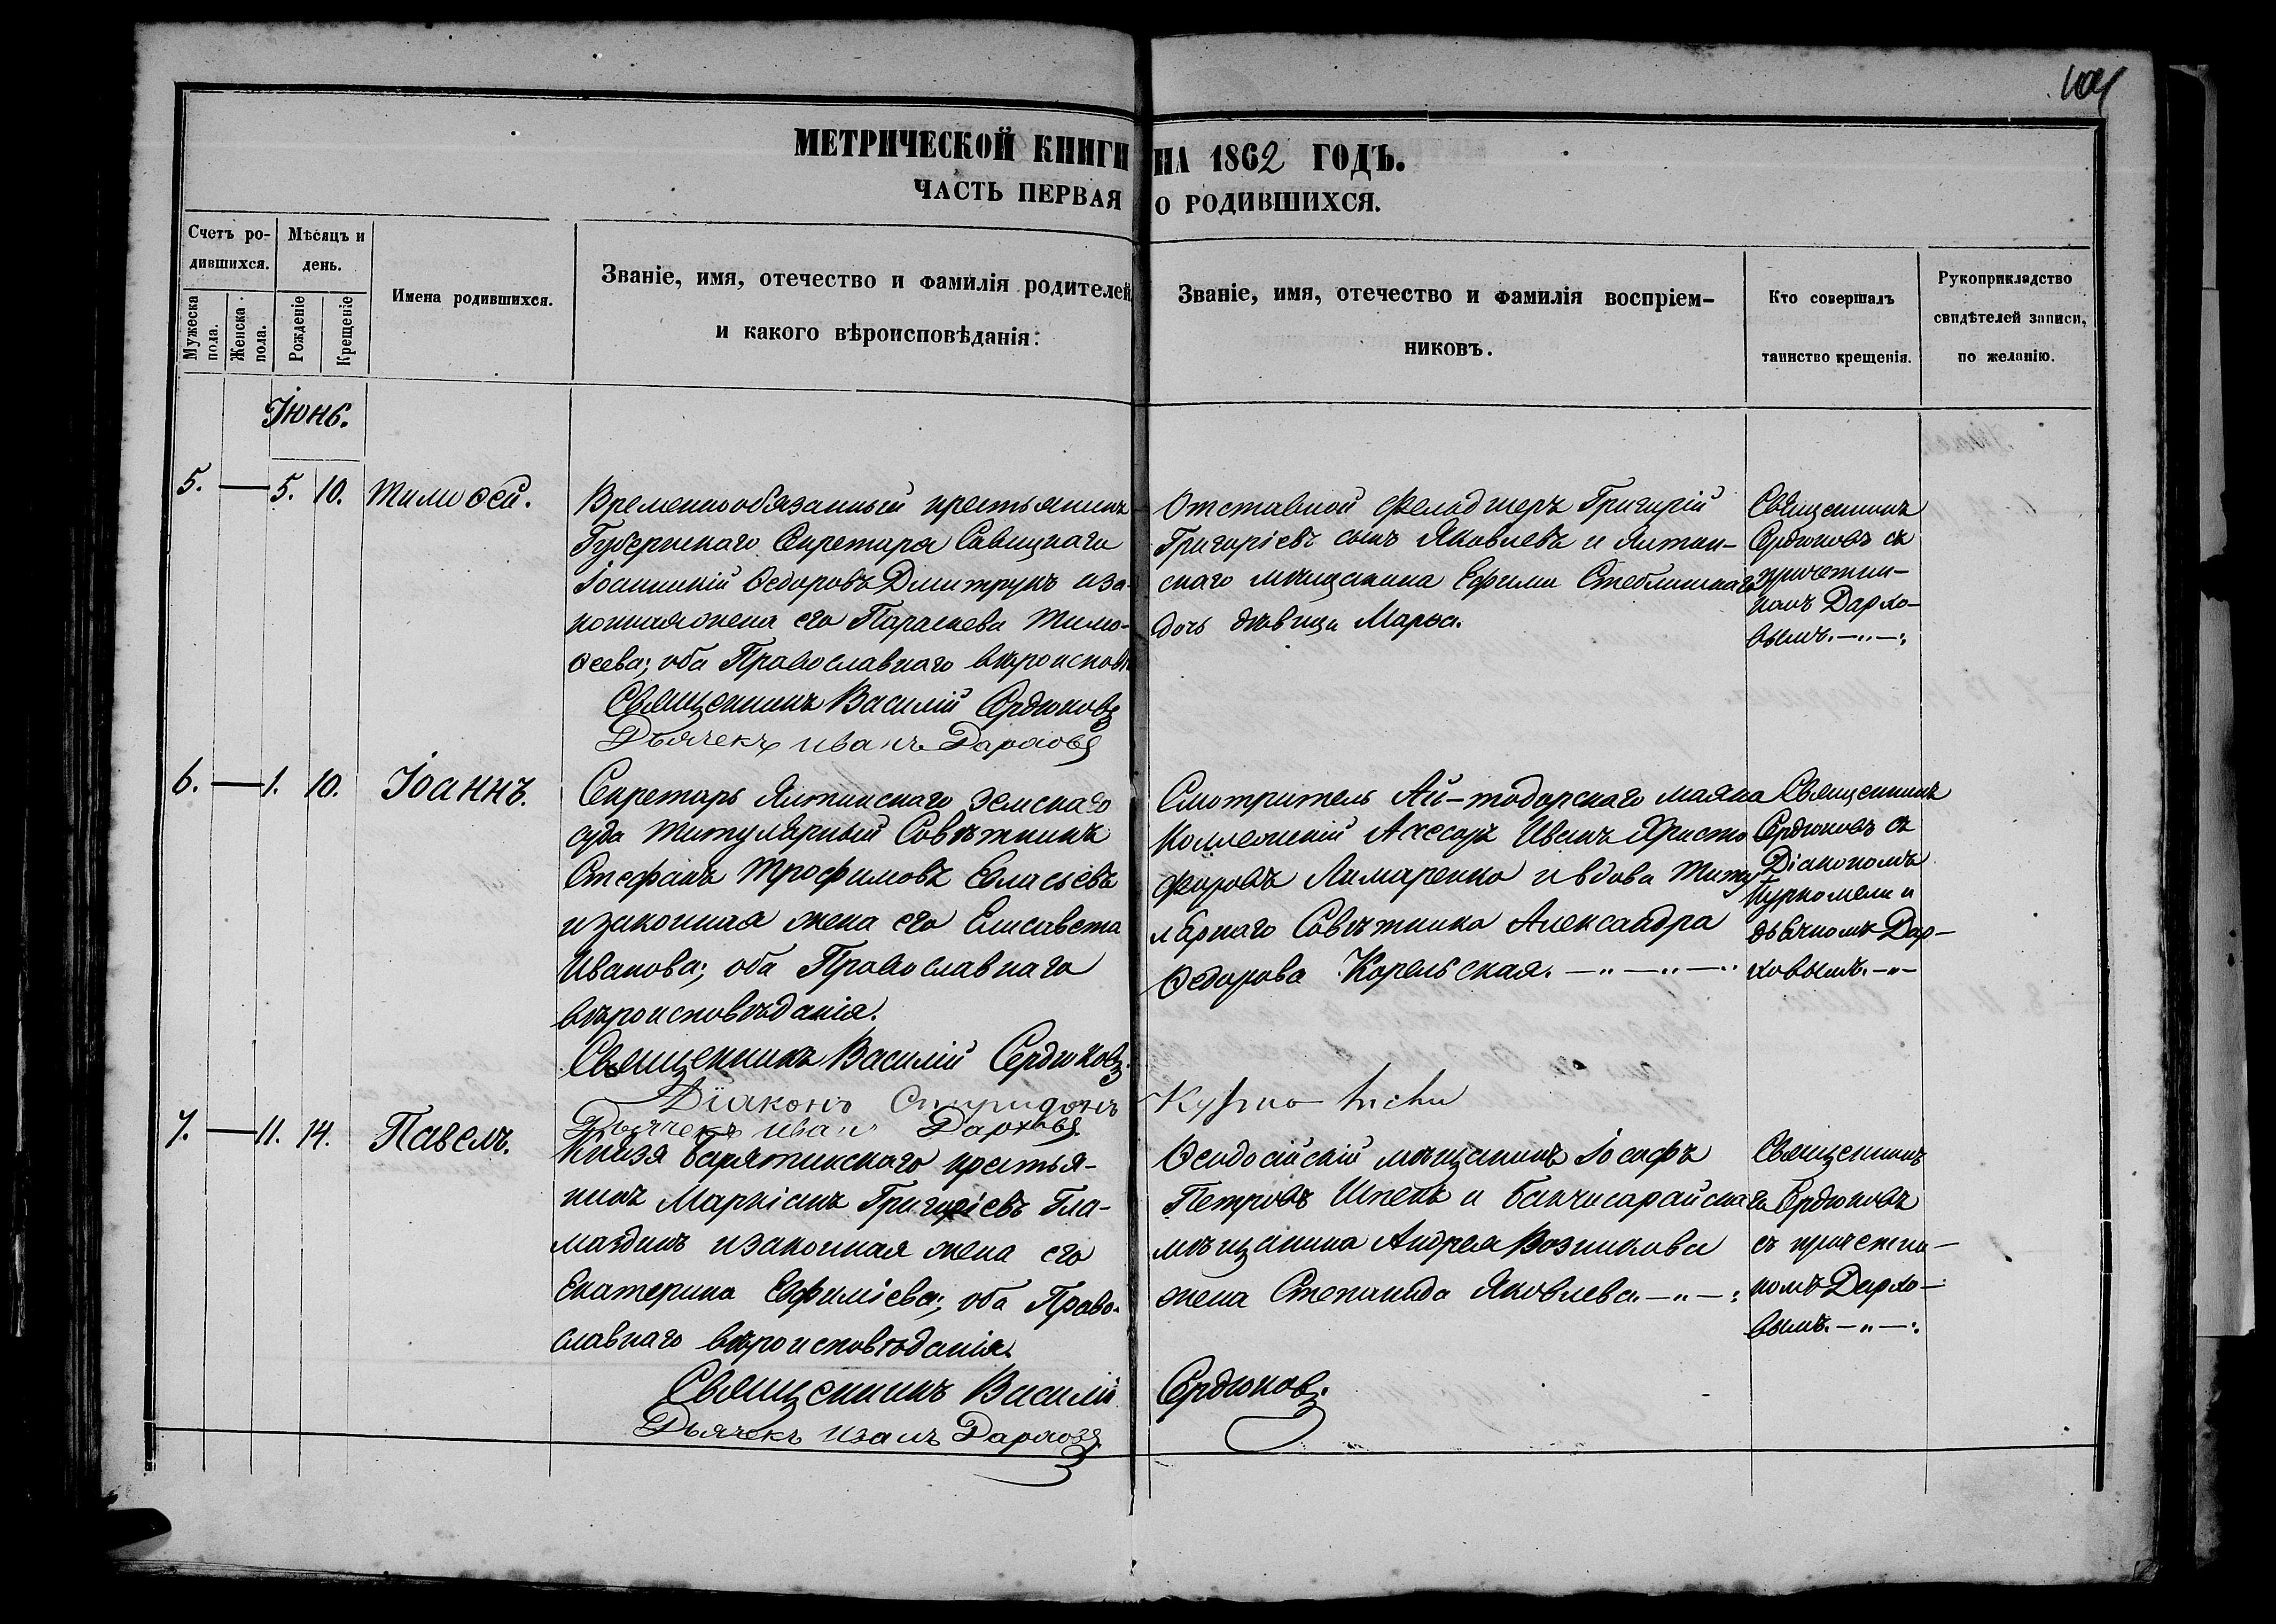 МЕТРИЧЕСКОЙ КНИГИ НА 1862 ГОДЪ.
ЧАСТЬ ПЕРВАЯ О РОДИВШИХСЯ.
Счетъ ро-
дившихся.
Мужеска
пола.
Женска.
пола.
Мѣсяцъ и
день.
Рожденіе
Крещеніе
Имена родившихся.
Званіе, имя, отечество и фамилія родителей
и какого вѣроисповѣданія:
Званіе, имя, отечество и фамилія воспріем-
никовъ.
Кто совершалъ
таинство крещенія.
Рукоприкладство
свидѣтелей записи,
по желанію.
Іюнь.
5. — 5. 10. Тимоѳей.
Временнообязанный крестьянинъ
Губернскаго Секретаря Савицкаго
Іоанникій Ѳедоровъ Дмитрукъ и за-
конная жена его Параскева Тимо-
ѳеева; оба Православнаго вѣроисповѣ
Священникъ Василій Сердюковъ
Дьячекъ Иванъ Дарховъ
Отставной Фельдшеръ Григорій
Григоріевъ сынъ Яковлевъ и Ялтин-
скаго мѣщанина Ефима Стеблинскаго
дочь дѣвица Марья.
Священникъ
Сердюковъ съ
причетни-
комъ Дархо-
вымъ.—„—:
6. — 1. 10. Іоаннъ.
Секретарь Ялтинскаго Земскаго
суда Титулярный Совѣтникъ
Стефанъ Трофимовъ Евласьевъ
и законная жена его Елисавета
Иванова; оба Православнаго
вѣроисповѣданія.
Священникъ Василій Сердюковъ.
Діаконъ Спиридонъ
Дьячекъ Иванъ Дарховъ.
Смотритель Ай-тодорскаго маяка
Коллежскій Ассесоръ Иванъ Христо
форовъ Лимаренко и вдова Титу
лярнаго Совѣтника Александра
Ѳедорова Корельская.—„—„—„
Священникъ
Сердюковъ съ
Діакономъ
Куркомели и
дьячкомъ Дар-
ховымъ.—„—
7. — 11. 14. Павелъ.
Князя Барятинскаго крестья-
нинъ Маркіанъ Григоріевъ Гла-
маздинъ и законная жена его
Екатерина Евфиміева; оба Право-
славнаго вѣроисповѣданія.
Священникъ Василій Сердюковъ.
Дьячекъ Иванъ Дарховъ
Ѳеодосійскій мѣщанинъ Іосифъ
Петровъ Шпекъ и Бахчисарайскаго
мѣщанина Андрея Возникова
жена Степанида Яковлева.—„—:
Священникъ
Сердюковъ
съ причетни-
комъ Дархо-
вымъ.—„—: